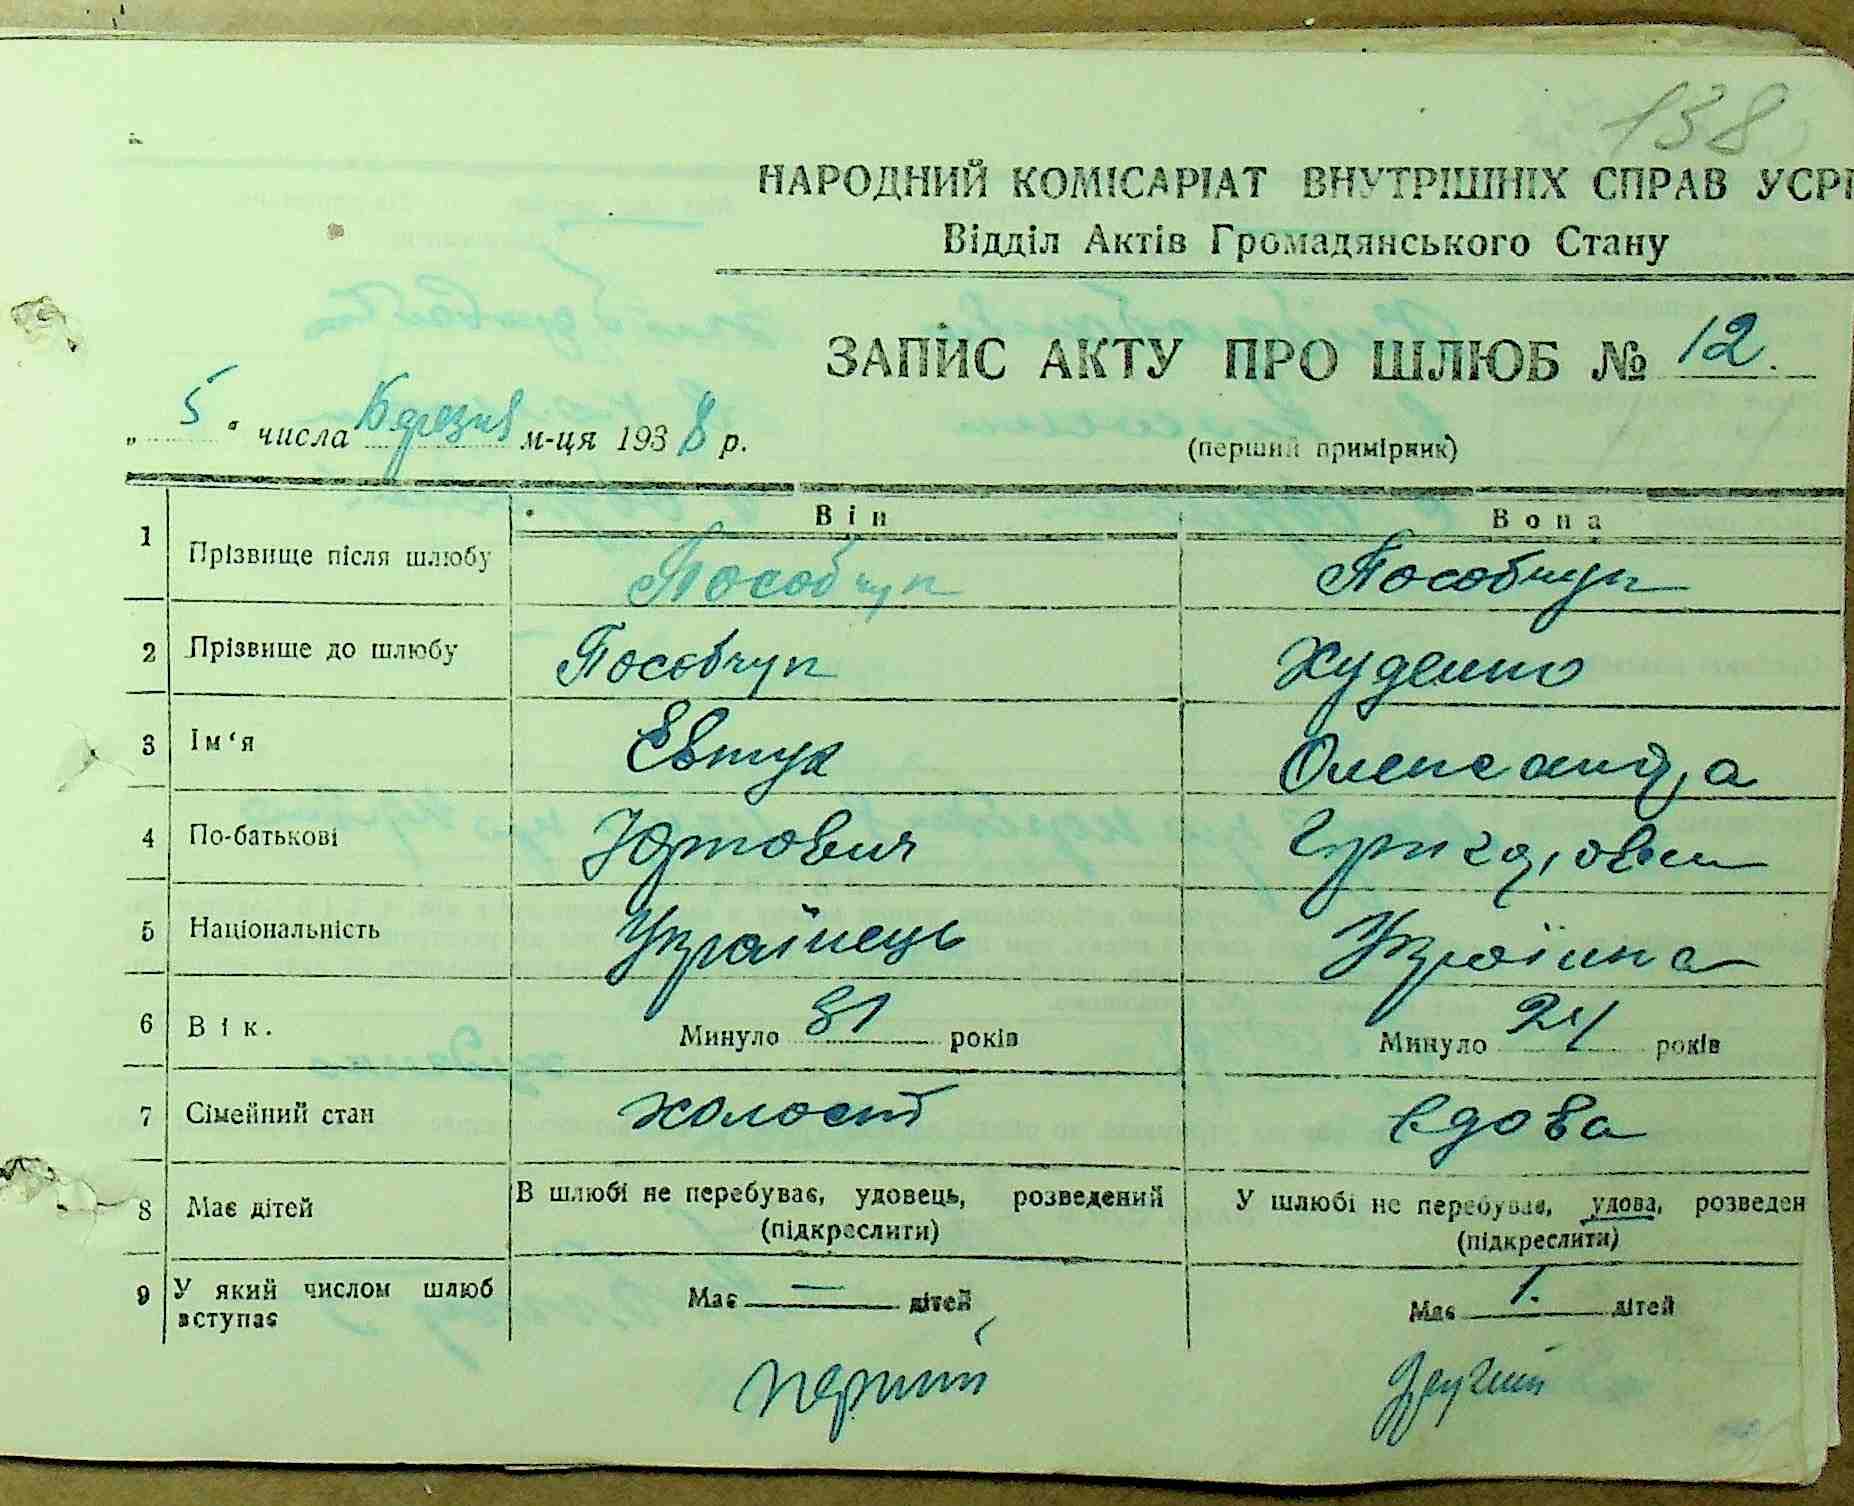 138
НАРОДНИЙ КОМІСАРІАТ ВНУТРІШНІХ СПРАВ УСРР
Відділ Актів Громадянського Стану
ЗАПИС АКТУ ПРО ШЛЮБ № 12.
„ 5 “ числа Березня м-ця 1938 р.
(перший примірник)
Він Вона
1 Прізвище після шлюбу Пособчук Пособчук
2 Прізвище до шлюбу Пособчук Худенко
3 Ім‘я Євтух Олександра
4 По-батькові Юхтович Григоровна
5 Національність Українець Українка
6 Вік. Минуло 31 років Минуло 24 років
7 Сімейний стан холост вдова
8 Має дітей В шлюбі не перебуває, удовець, розведений У шлюбі не перебуває, удова, розведен
(підкреслити) (підкреслити)
9 У який числом шлюб вступає Має — дітей Має 1. дітей
перший другий